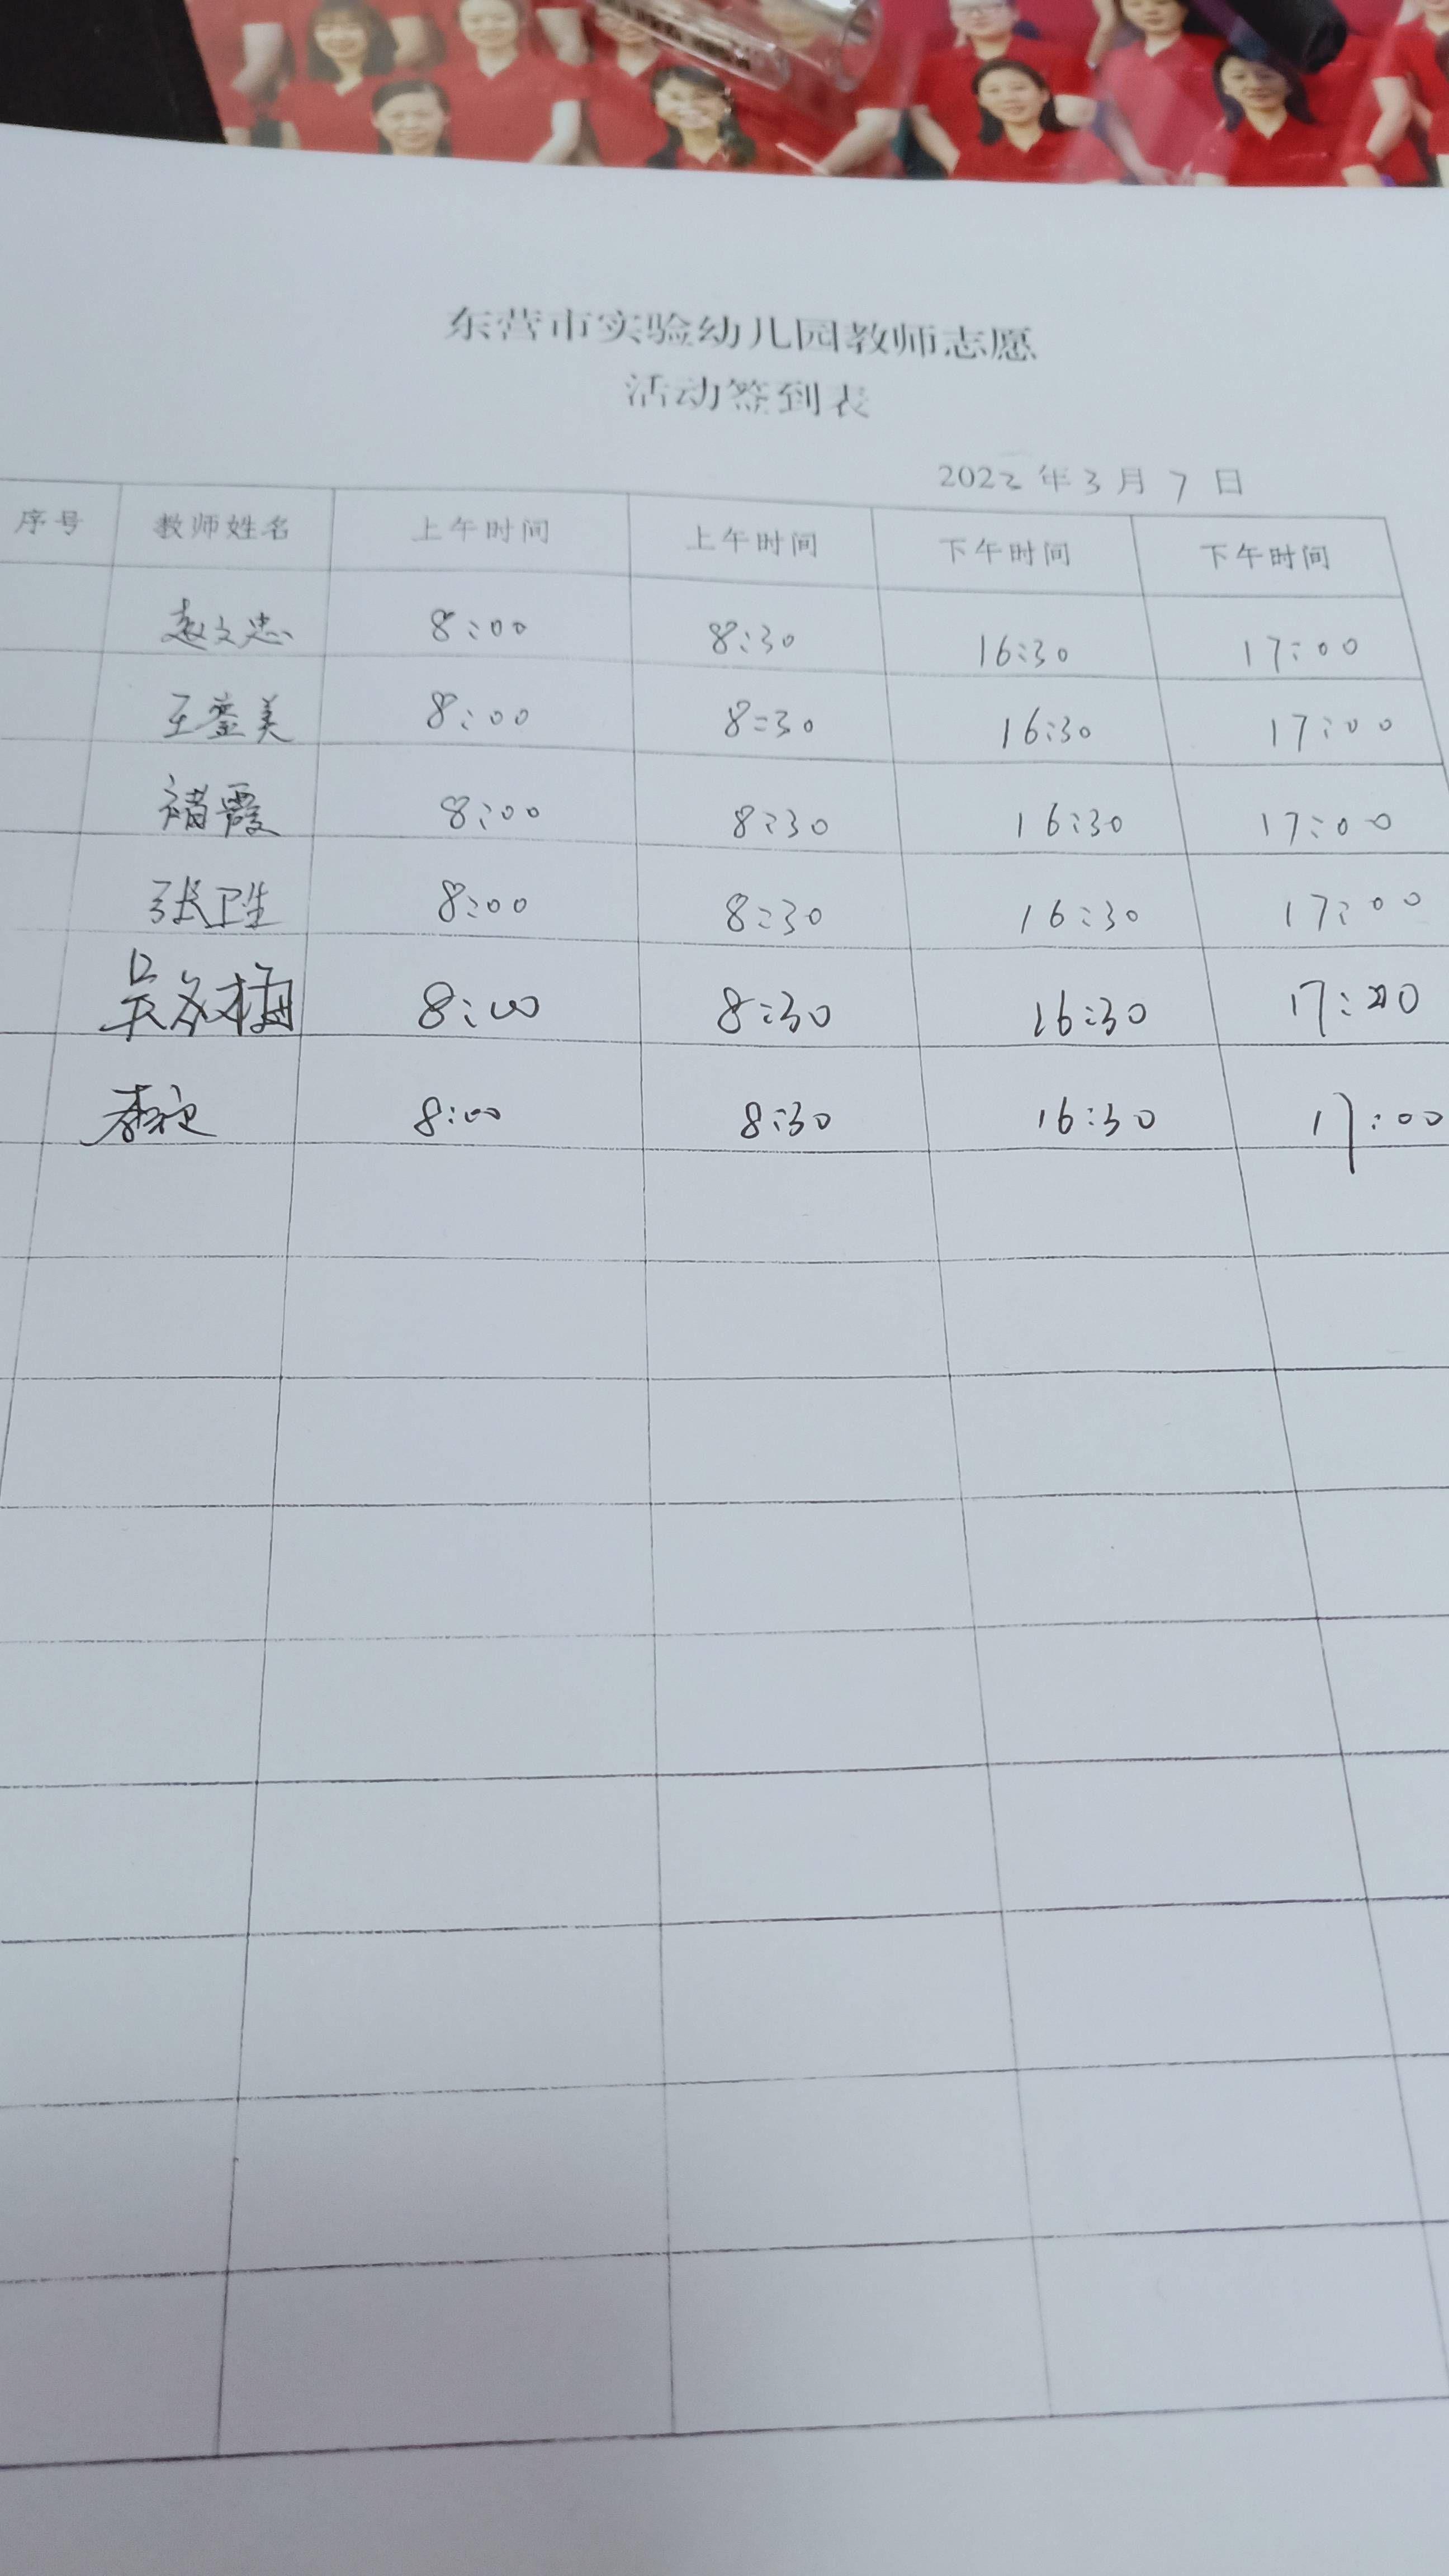 东营市实验幼儿园教师志愿
活动签到表
2022 年 3 月 7 日
序号 教师姓名 上午时间 上午时间 下午时间 下午时间
赵文忠 8:00 8:30 16:30 17:00
王 美 8:00 8:30 16:30 17:00
褚霞 8:00 8:30 16:30 17:00
张卫生 8:00 8:30 16:30 17:00
吴冬梅 8:00 8:30 16:30 17:00
8:00 8:30 16:30 17:00